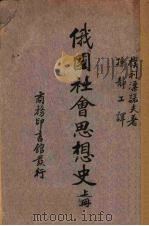 樸利漢諾夫著
孫靜工譯
俄國社會思想史 上
商務印書館發行